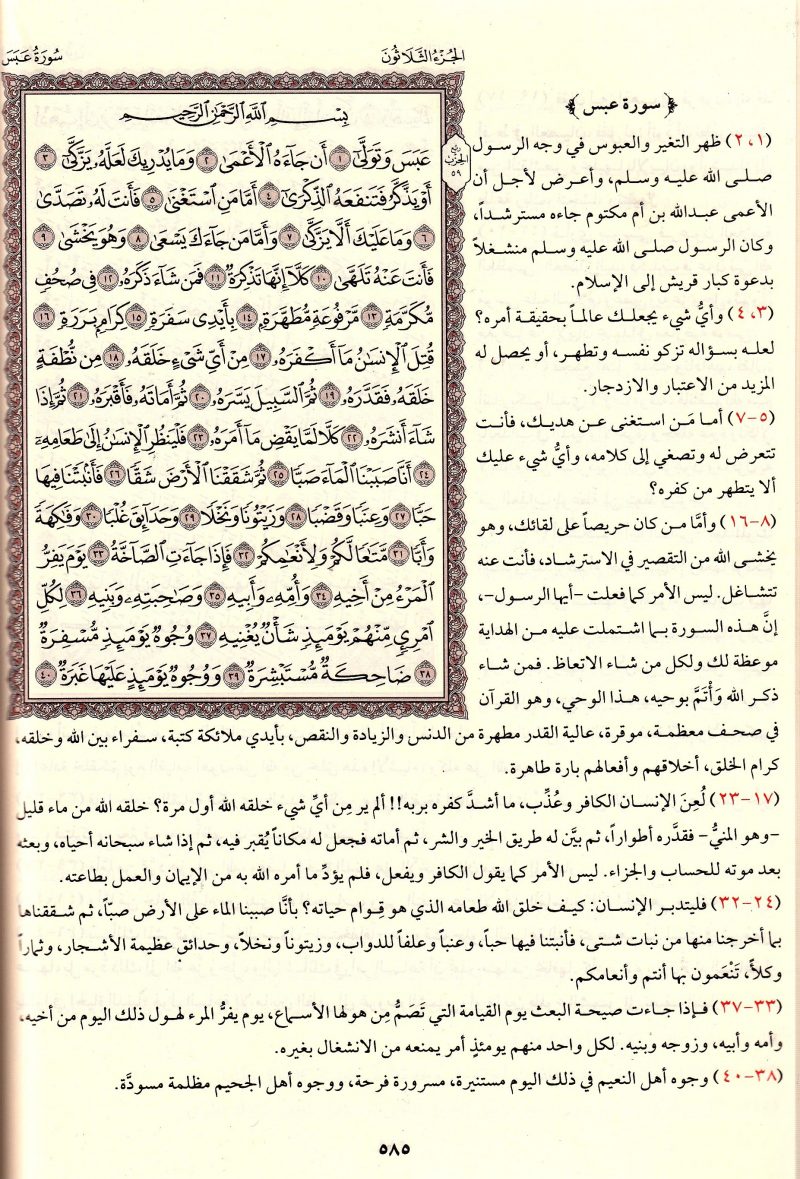 الجُزْءُ الثَّلَاثُونَ
سُورَةُ عَبَسَ
بِسْمِ ٱللَّهِ ٱلرَّحْمَٰنِ ٱلرَّحِيمِ
عَبَسَ وَتَوَلَّىٰٓ ١ أَن جَآءَهُ ٱلْأَعْمَىٰ ٢ وَمَا يُدْرِيكَ لَعَلَّهُۥ يَزَّكَّىٰٓ ٣
أَوْ يَذَّكَّرُ فَتَنفَعَهُ ٱلذِّكْرَىٰٓ ٤ أَمَّا مَنِ ٱسْتَغْنَىٰ ٥ فَأَنتَ لَهُۥ تَصَدَّىٰ
٦ وَمَا عَلَيْكَ أَلَّا يَزَّكَّىٰ ٧ وَأَمَّا مَن جَآءَكَ يَسْعَىٰ ٨ وَهُوَ يَخْشَىٰ ٩
فَأَنتَ عَنْهُ تَلَهَّىٰ ١٠ كَلَّآ إِنَّهَا تَذْكِرَةٌ ١١ فَمَن شَآءَ ذَكَرَهُۥ ١٢ فِى صُحُفٍ
مُّكَرَّمَةٍ ١٣ مَّرْفُوعَةٍ مُّطَهَّرَةٍۭ ١٤ بِأَيْدِى سَفَرَةٍ ١٥ كِرَامٍۭ بَرَرَةٍ ١٦
قُتِلَ ٱلْإِنسَٰنُ مَآ أَكْفَرَهُۥ ١٧ مِنْ أَىِّ شَىْءٍ خَلَقَهُۥ ١٨ مِن نُّطْفَةٍ
خَلَقَهُۥ فَقَدَّرَهُۥ ١٩ ثُمَّ ٱلسَّبِيلَ يَسَّرَهُۥ ٢٠ ثُمَّ أَمَاتَهُۥ فَأَقْبَرَهُۥ ٢١ ثُمَّ إِذَا
شَآءَ أَنشَرَهُۥ ٢٢ كَلَّا لَمَّا يَقْضِ مَآ أَمَرَهُۥ ٢٣ فَلْيَنظُرِ ٱلْإِنسَٰنُ إِلَىٰ طَعَامِهِۦٓ
٢٤ أَنَّا صَبَبْنَا ٱلْمَآءَ صَبًّا ٢٥ ثُمَّ شَقَقْنَا ٱلْأَرْضَ شَقًّا ٢٦ فَأَنۢبَتْنَا فِيهَا
حَبًّا ٢٧ وَعِنَبًا وَقَضْبًا ٢٨ وَزَيْتُونًا وَنَخْلًا ٢٩ وَحَدَآئِقَ غُلْبًا ٣٠ وَفَٰكِهَةً
وَأَبًّا ٣١ مَّتَٰعًا لَّكُمْ وَلِأَنْعَٰمِكُمْ ٣٢ فَإِذَا جَآءَتِ ٱلصَّآخَّةُ ٣٣ يَوْمَ يَفِرُّ
ٱلْمَرْءُ مِنْ أَخِيهِ ٣٤ وَأُمِّهِۦ وَأَبِيهِ ٣٥ وَصَٰحِبَتِهِۦ وَبَنِيهِ ٣٦ لِكُلِّ
ٱمْرِئٍ مِّنْهُمْ يَوْمَئِذٍ شَأْنٌ يُغْنِيهِ ٣٧ وُجُوهٌ يَوْمَئِذٍ مُّسْفِرَةٌ
٣٨ ضَاحِكَةٌ مُّسْتَبْشِرَةٌ ٣٩ وَوُجُوهٌ يَوْمَئِذٍ عَلَيْهَا غَبَرَةٌ ٤٠
ربع
الحزب
٥٩
﴿سورة عبس﴾
(١، ٢) ظهر التغير والعبوس في وجه الرسول
صلى الله عليه وسلم، وأعرض لأجل أن
الأعمى عبدالله بن أم مكتوم جاءه مسترشداً،
وكان الرسول صلى الله عليه وسلم منشغلاً
بدعوة كبار قريش إلى الإسلام.
(٣، ٤) وأيُّ شيء يجعلك عالماً بحقيقة أمره؟
لعله بسؤاله تزكو نفسه وتطهر، أو يحصل له
المزيد من الاعتبار والازدجار.
(٥-٧) أما مَن استغنى عن هديك، فأنت
تتعرض له وتصغي إلى كلامه، وأيُّ شيء عليك
ألا يتطهر من كفره؟
(٨-١٦) وأمَّا من كان حريصاً على لقائك، وهو
يخشى الله من التقصير في الاسترشاد، فأنت عنه
تتشاغل. ليس الأمر كما فعلت -أيها الرسول-،
إنَّ هذه السورة بما اشتملت عليه من الهداية
موعظة لك ولكل من شاء الاتعاظ. فمن شاء
ذكر الله وَأْتَمَّ بوحيه، هذا الوحي، وهو القرآن
في صحف معظمة، موقرة، عالية القدر مطهرة من الدنس والزيادة والنقص، بأيدي ملائكة كتبة، سفراء بين الله وخلقه،
كرام الخلق، أخلاقهم وأفعالهم بارة طاهرة.
(١٧-٢٣) لُعِنَ الإنسان الكافر وعُذِّب، ما أشدَّ كفره بربه!! ألم ير مِن أيِّ شيء خلقه الله أول مرة؟ خلقه الله من ماء قليل
-وهو المنيُّ- فقدَّره أطواراً، ثم بيَّن له طريق الخير والشر، ثم أماته فجعل له مكاناً يُقبر فيه، ثم إذا شاء سبحانه أحياه، وبعثه
بعد موته للحساب والجزاء. ليس الأمر كما يقول الكافر ويفعل، فلم يؤدِّ ما أمره الله به من الإيمان والعمل بطاعته.
(٢٤-٣٢) فليتدبر الإنسان: كيف خلق الله طعامه الذي هو قِوام حياته؟ بأنَّا صببنا الماء على الأرض صبّاً، ثم شققناها
بما أخرجنا منها من نبات شتى، فأنبتنا فيها حباً، وعنباً وعلفاً للدواب، وزيتوناً ونخلاً، وحدائق عظيمة الأشجار، وثماراً
وكلأً، تَنْعَمون بها أنتم وأنعامكم.
(٣٣-٣٧) فإذا جاءت صيحة البعث يوم القيامة التي تَصَمُّ مِن هولها الأسماع، يوم يفرُّ المرء لهول ذلك اليوم من أخيه،
وأمه وأبيه، وزوجه وبنيه. لكل واحد منهم يومئذٍ أمر يمنعه من الانشغال بغيره.
(٣٨-٤٠) وجوه أهل النعيم في ذلك اليوم مستنيرة، مسرورة فرحة، ووجوه أهل الجحيم مظلمة مسودَّة.
٥٨٥